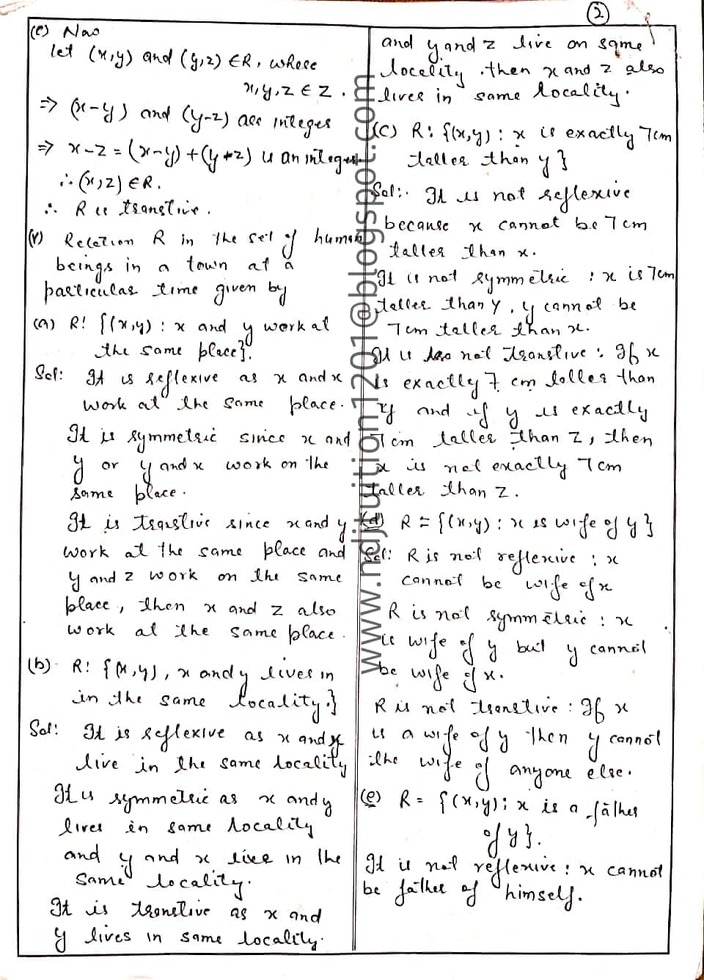 ②
(e) Now
let (x,y) and (y,z) ∈R, where
x,y,z ∈ Z.
⇒ (x-y) and (y-z) are integers
⇒ x-z = (x-y)+(y-z) is an integer
∴ (x,z) ∈R.
∴ R is transtive.
(v) Relation R in the set of human
beings in a town at a
particular time given by
(a) R: {(x,y) : x and y work at
the same place}.
Sol: It is reflexive as x and x
work at the same place.
It is symmetric since x and
y or y and x work on the
same place.
It is transtive since x and y
work at the same place and
y and z work on the same
place, then x and z also
work at the same place.
(b) R: {(x,y), x and y lives in
in the same locality.}
Sol: It is reflexive as x and x
live in the same locality
It is symmetric as x and y
lives in same locality
and y and x live in the
same locality.
It is transtive as x and
y lives in same locality.
and y and z live on same
locality. then x and z also
lives in same locality.
(c) R: {(x,y) : x is exactly 7cm
taller than y}
Sol:. It is not reflexive
because x cannot be 7cm
taller than x.
It is not symmetric : x is 7cm
taller than y, y cannot be
7cm taller than x.
It is not transtive : If x
is exactly 7 cm taller than
y and if y is exactly
7cm taller than z, then
x is not exactly 7cm
taller than z.
(d) R = {(x,y) : x is wife of y}
Sol: R is not reflexive : x
cannot be wife of x
R is not symmetric : x
is wife of y but y cannot
be wife of x.
R is not transtive : If x
is a wife of y then y cannot
the wife of anyone else.
(e) R = {(x,y); x is a father
of y}.
It is not reflexive : x cannot
be father of himself.
www.ndjtuition1201@blogspot.com